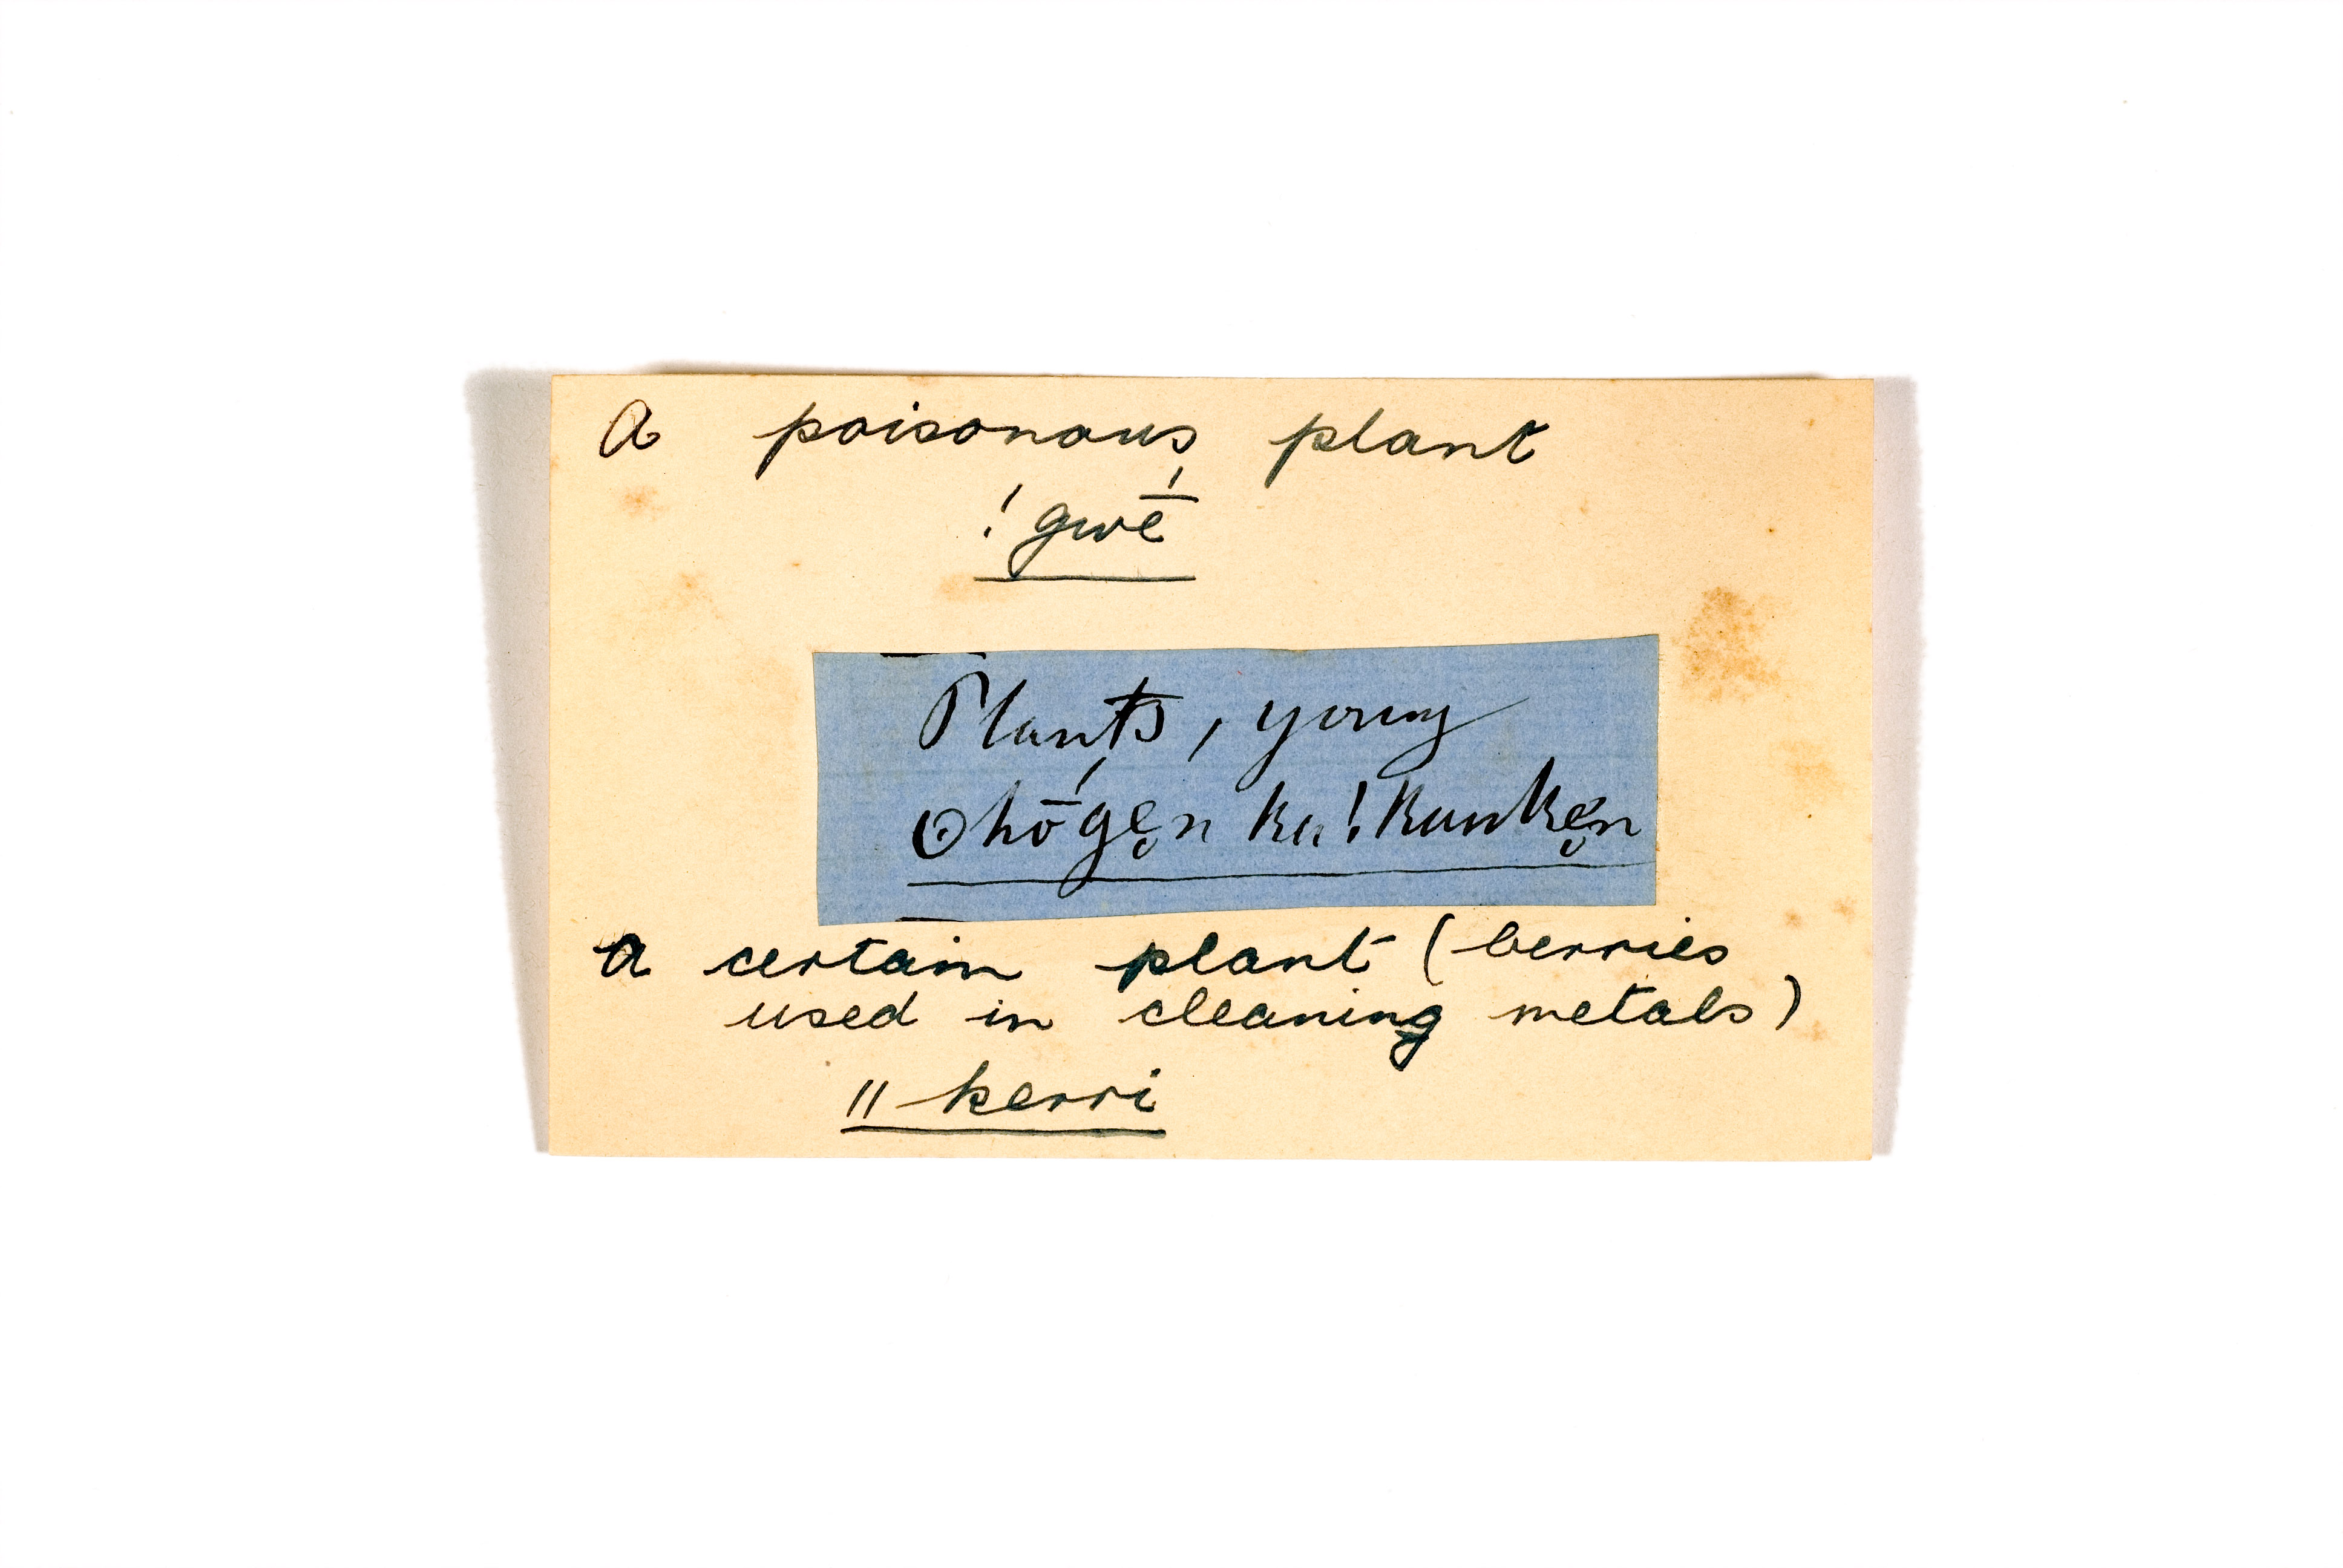 A poisonous plant
!gwḗ
Plants, young
ʘhṓgen̥ ka !kauken̥
a certain plant (berries
used in cleaning metals)
ǁkerri